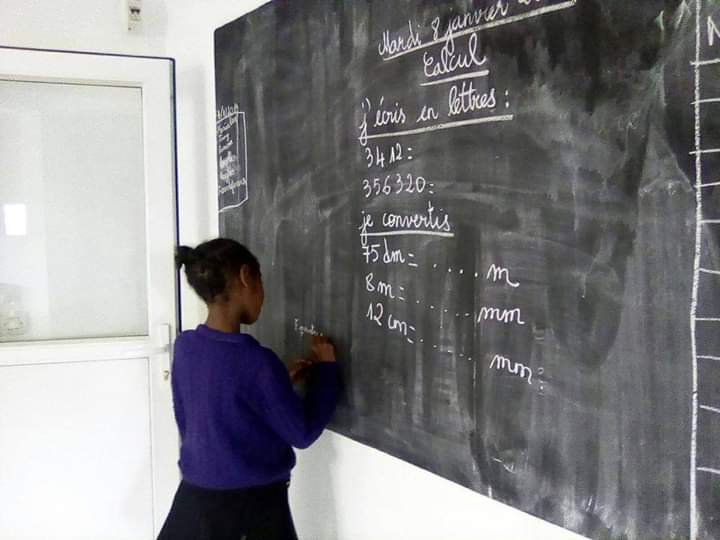 Mardi 8 janvier
Calcul
j'écris en lettres :
3412=
356320=
je convertis
75dm= . . . . m
8m= . . . . . mm
12cm= . . . . . mm: